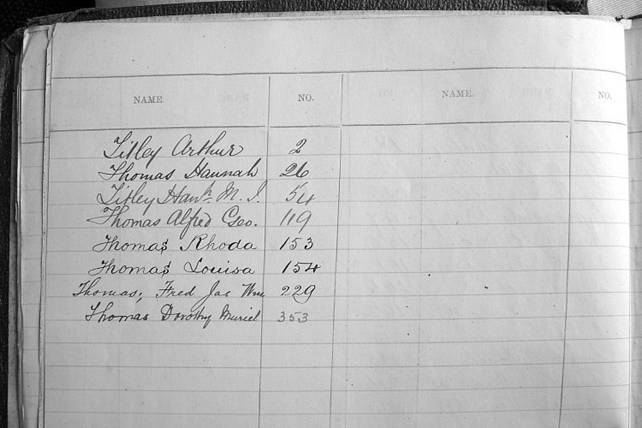 NAME. NO. NAME. NO.
Titley Arthur 2
Thomas Hannah 26
Titley Hanh. M. J. 54
Thomas Alfred Geo. 119
Thomas Rhoda 153
Thomas Louisa 154
Thomas, Fred Jas Wm 229
Thomas Dorothy Muriel 353